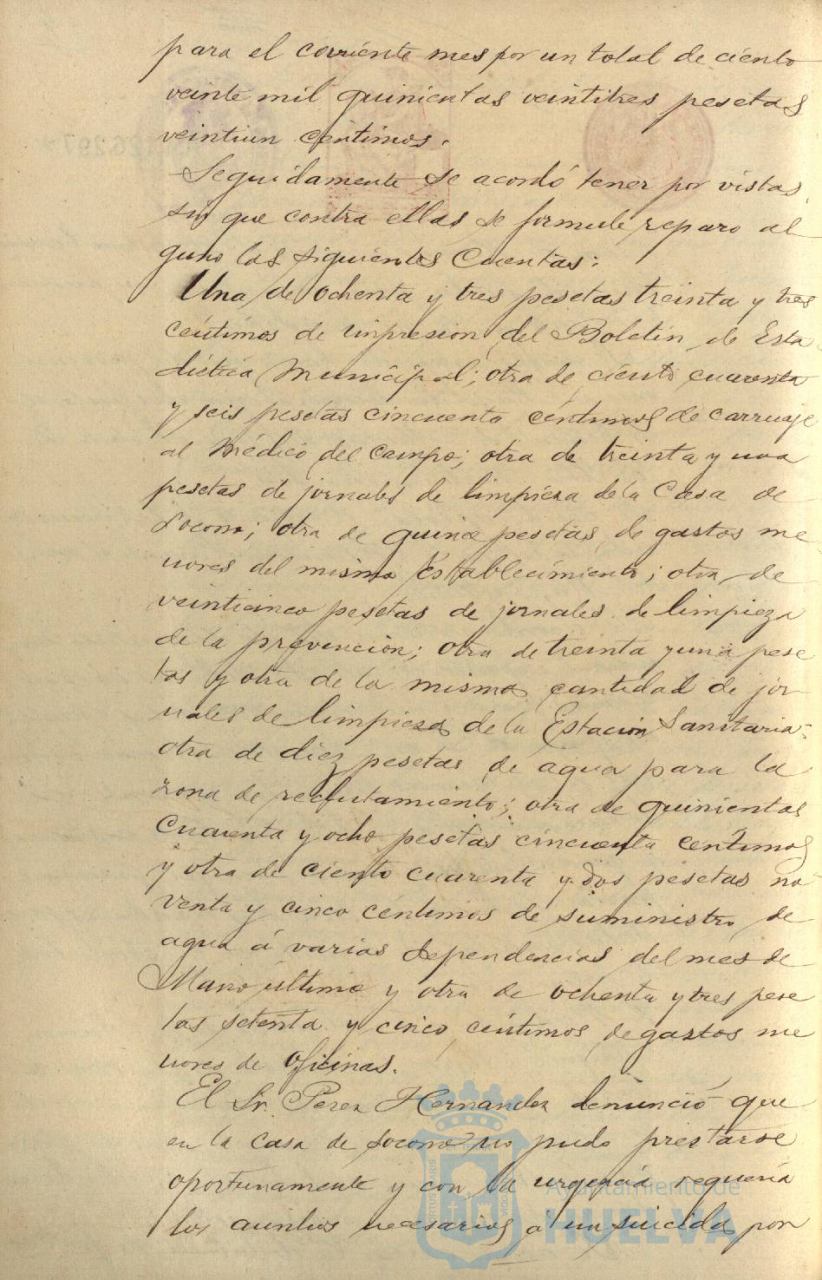 para el corriente mes por un total de ciento
veinte mil quinientas veintitres pesetas
veintiun centimos.
Seguidamente se acordó tener por vistas,
sin que contra ellas se formule reparo al
guno las siguientes Cuentas:
Una de ochenta y tres pesetas treinta y tres
centimos de impresion del Boletin de Esta
distica Municipal; otra de ciento cuarenta
y seis pesetas cincuenta céntimos de carruaje
al Médico del Campo; otra de treinta y una
pesetas de jornales de limpieza de la Casa de
Socorro; otra de quince pesetas de gastos me
nores del mismo Establecimiento; otra de
veinticinco pesetas de jornales de limpieza
de la prevencion; otra de treinta y una pese
tas y otra de la misma cantidad de jor
nales de limpieza de la Estacion Sanitaria;
otra de diez pesetas de agua para la
zona de reclutamiento; otra de quinientas
cuarenta y ocho pesetas cincuenta centimos
y otra de ciento cuarenta y dos pesetas no
venta y cinco centimos de suministro de
agua á varias dependencias del mes de
ultimo y otra de ochenta y tres pese
tas setenta y cinco centimos de gastos me
nores de oficinas.
El Sr. Perez Hernandez denunció que
en la casa de Socorro no pudo prestarse
oportunamente y con la urgencia requeria
los auxilios necesarios á un suicida por
Ayuntamiento de
HUELVA